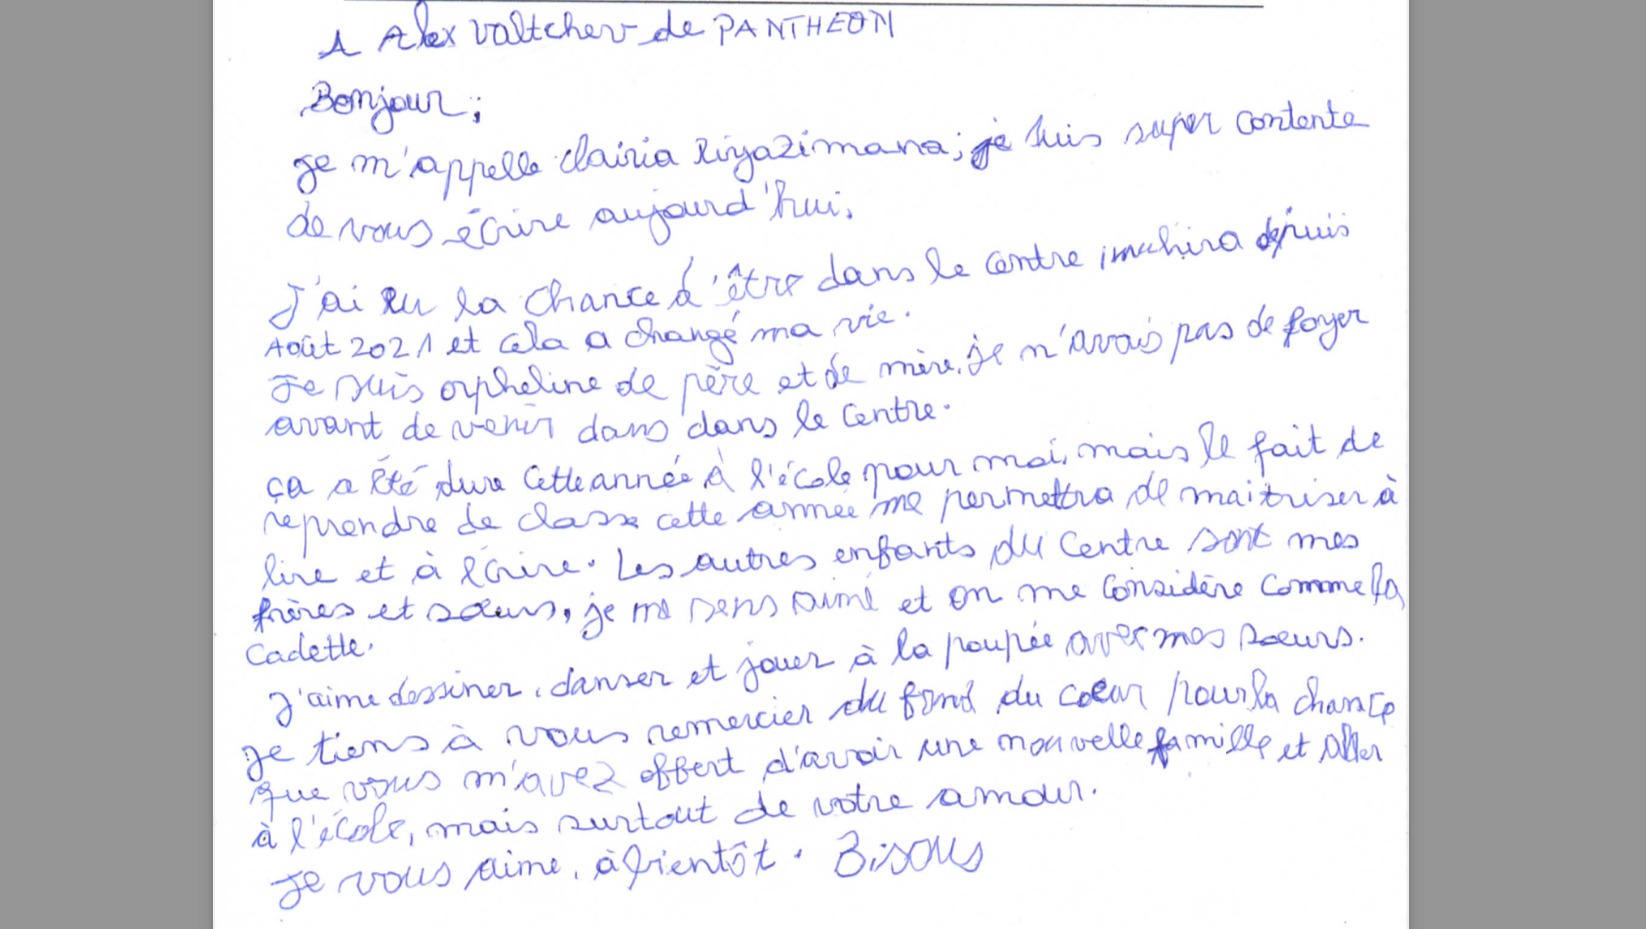 A Alex Valtchev de PANTHEON
Bonjour;
je m'appelle clairia Riyazimana; je suis super contente
de vous écrire aujourd'hui.
J'ai eu la chance d'être dans le centre imuhira depuis
Août 2021 et cela a changé ma vie.
Je suis orpheline de père et de mère. je n'avais pas de foyer
avant de venir dans dans le centre.
ça a été dure cette année à l'école pour moi, mais le fait de
reprendre de classe cette année me permettra de maitriser à
lire et à écrire. Les autres enfants du centre sont mes
frères et sœurs, je me sens aimé et on me considère comme la
cadette.
J'aime dessiner, danser et jouer à la poupée avec mes sœurs.
Je tiens à vous remercier du fond du cœur pour la chance
que vous m'avez offert d'avoir une nouvelle famille et aller
à l'école, mais surtout de votre amour.
Je vous aime, à bientôt. Bisous